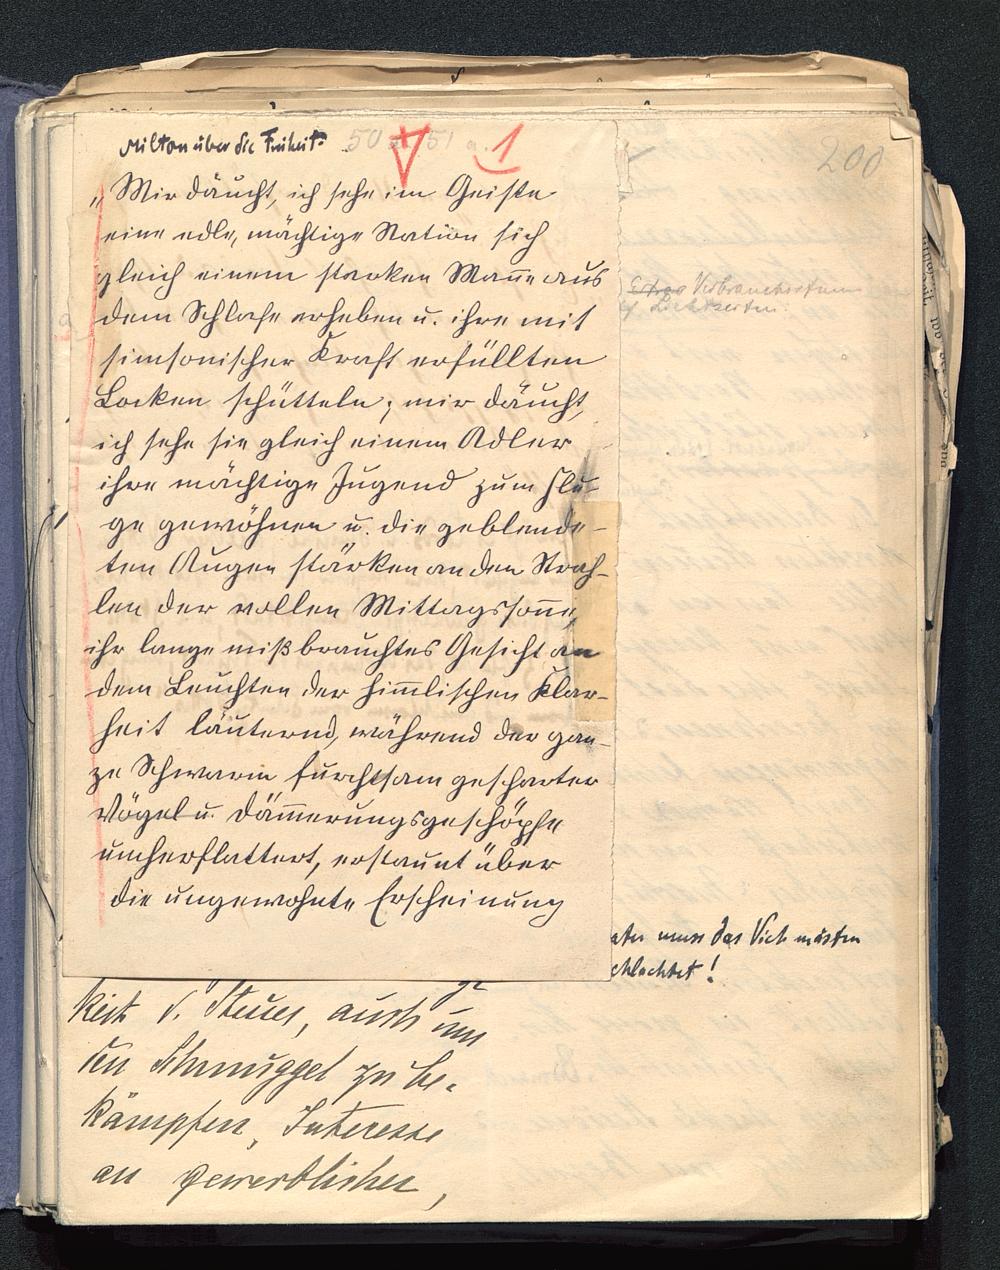 Milton über die Freiheit.
50 51 a. 1
200
„Mir däucht, ich sehe im Geiste
eine edle, mächtige Nation sich
gleich einem starken Mañe aus
dem Schlafe erheben u. ihre mit
simsonischer Kraft erfüllten
Locken schütteln; mir däucht,
ich sehe sie gleich einem Adler
ihre mächtige Jugend zum Flu-
ge gewöhnen u. die geblende-
ten Augen stärken an den Strah-
len der vollen Mittagssoñe,
ihr lange mißbrauchtes Gesicht an
dem Leuchten der him̄lischen Klar-
heit läuternd, während der gan-
ze Schwarm furchtsam gescharter
Vögel u. Däm̄erungsgeschöpfe
umherflattert, erstaunt über
die ungewohnte Erscheinung
muss das Vieh mästen
schlachtet!
keit d. Steuer, auch um
den Schmuggel zu be-
kämpfen, Interesse
an gewerblicher,